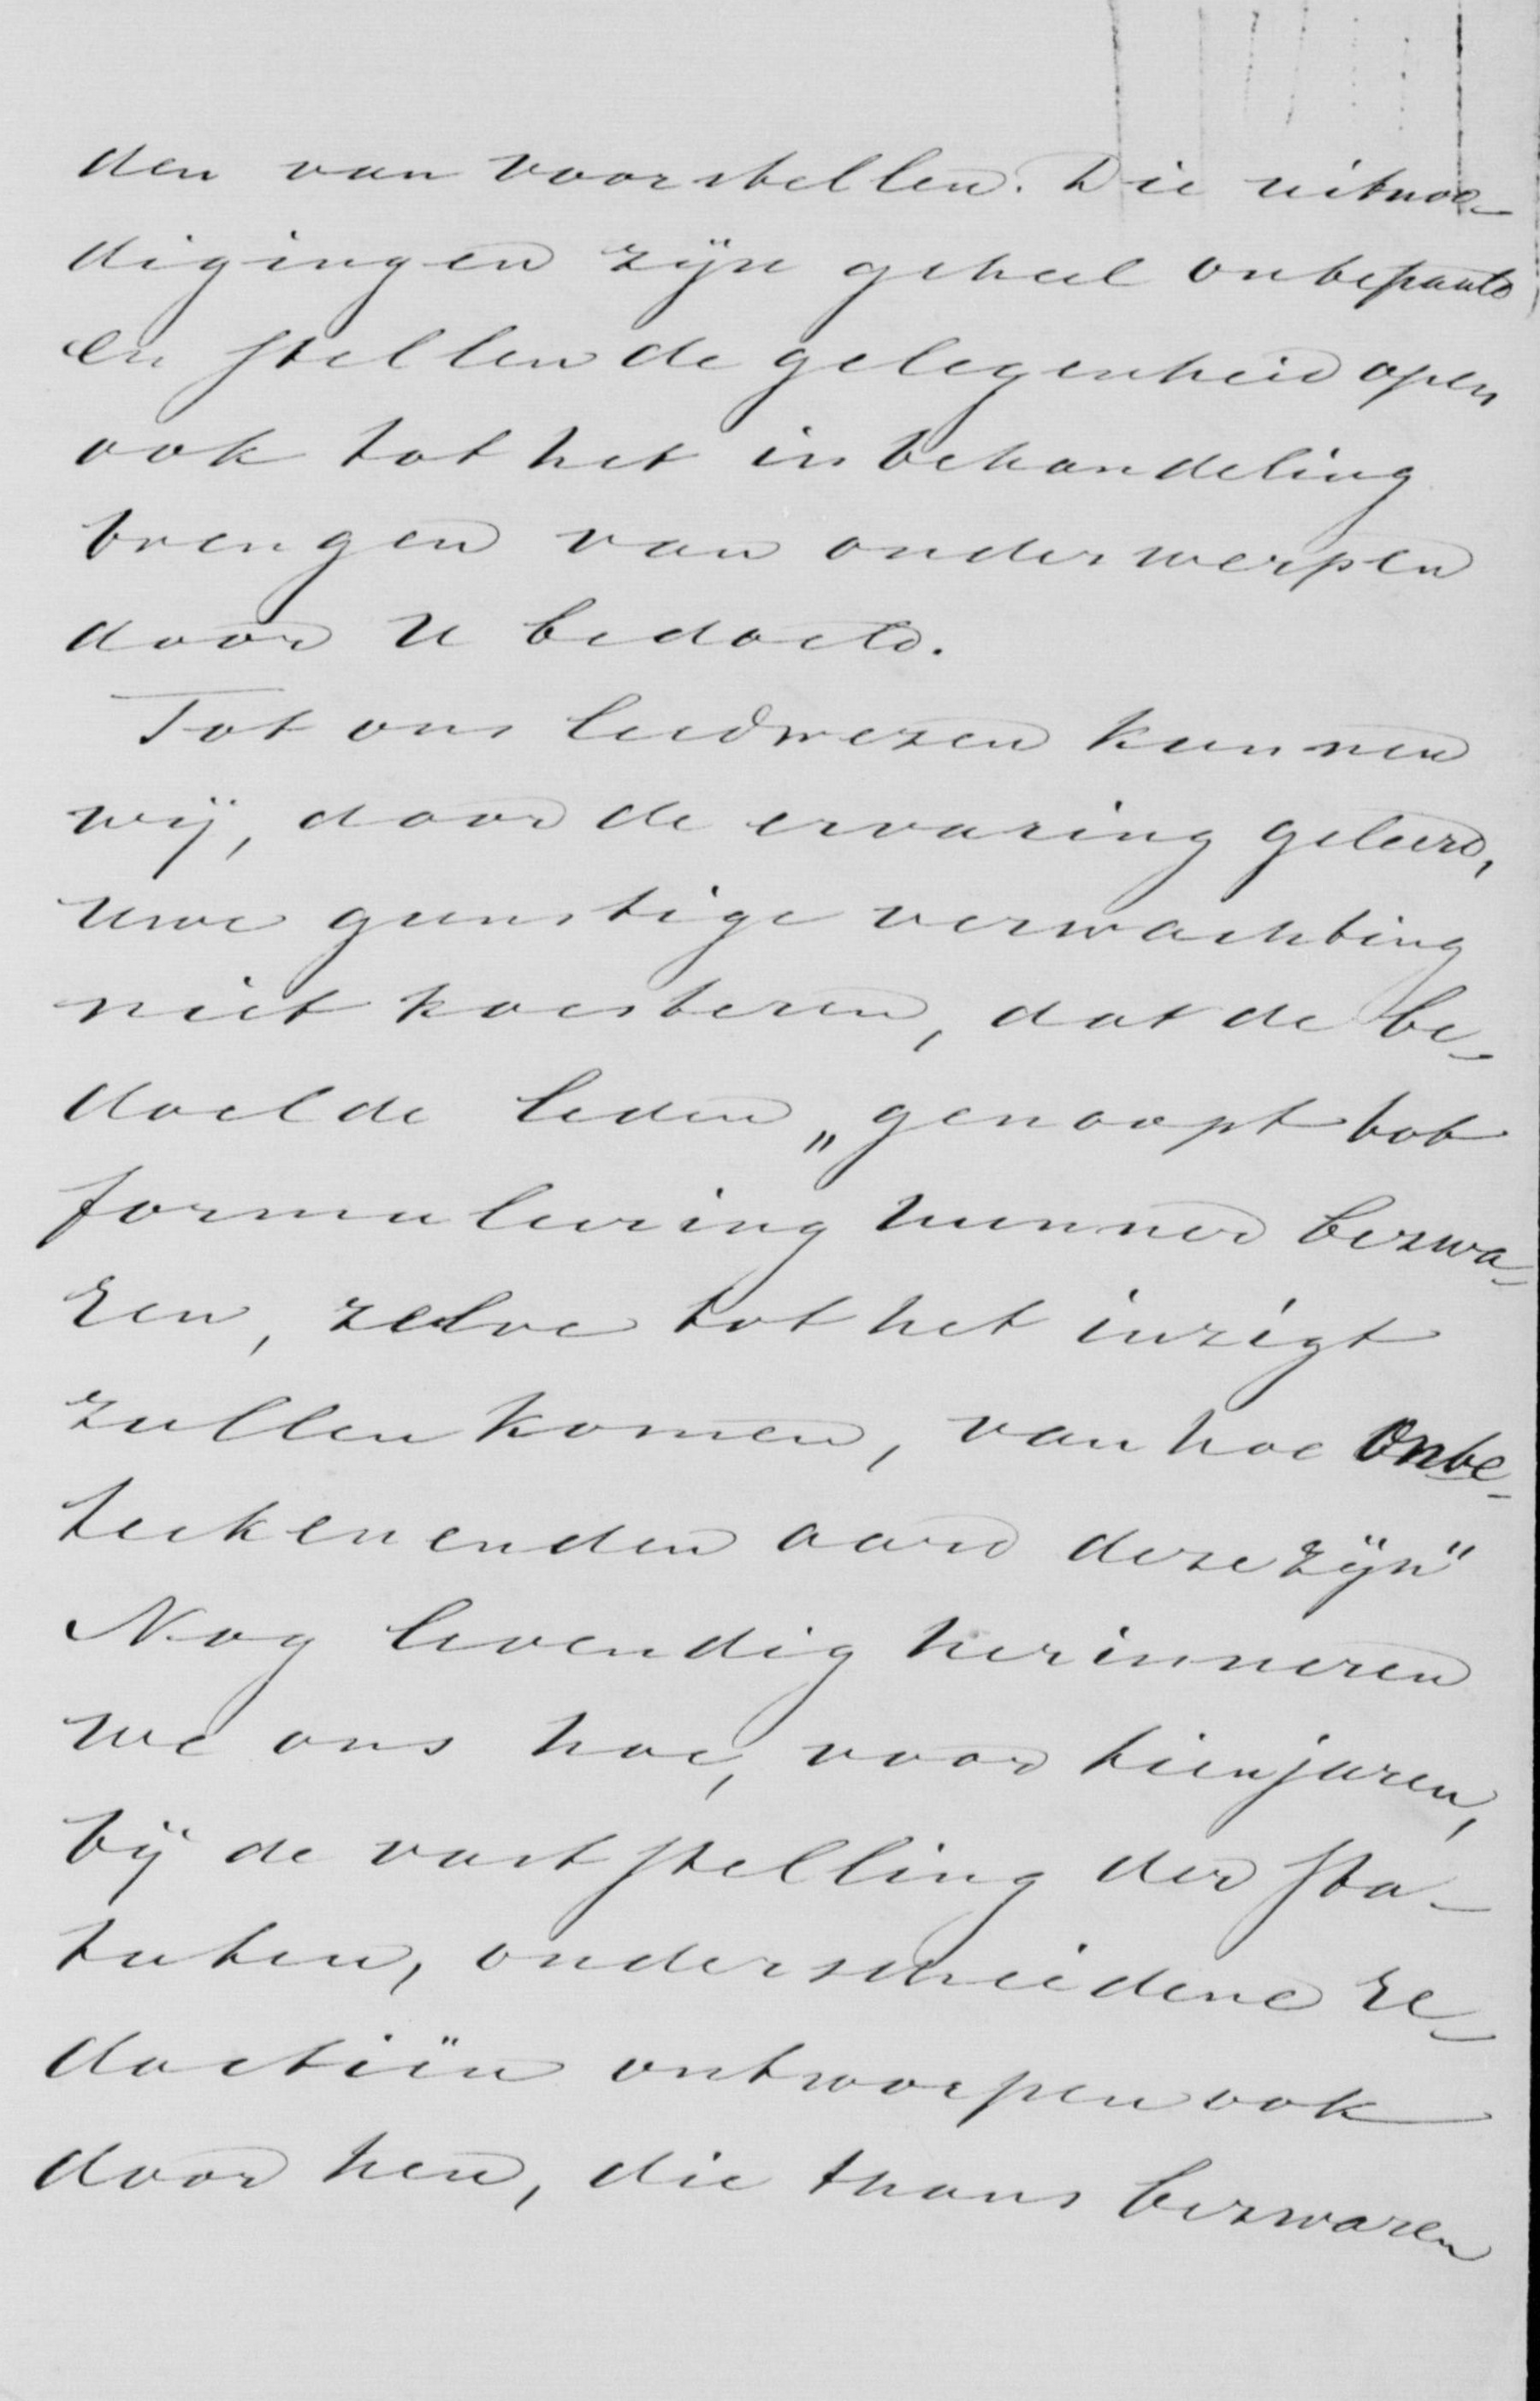 den van voorstellen. Die uitnoo-
digingen zijn geheel onbepaald
en stellen de gelegenheid open
ook tot het in behandeling
brengen van onderwerpen
door U bedoeld.
Tot ons leedwezen kunnen
wij, door de ervaring geleerd,
uwe gunstige verwachting
niet koesteren, dat de be-
doelde leden „genoopt tot
formuleering hunner bezwa-
ren, zelve tot het inzigt
zullen komen, van hoe onbe-
teekenenden aard deze zijn"
Nog levendig herinneren
we ons hoe, voor tien jaren,
bij de vaststelling der sta-
tuten, onderscheidene re-
dactiën ontworpen ook
door hen, die thans bezwaren